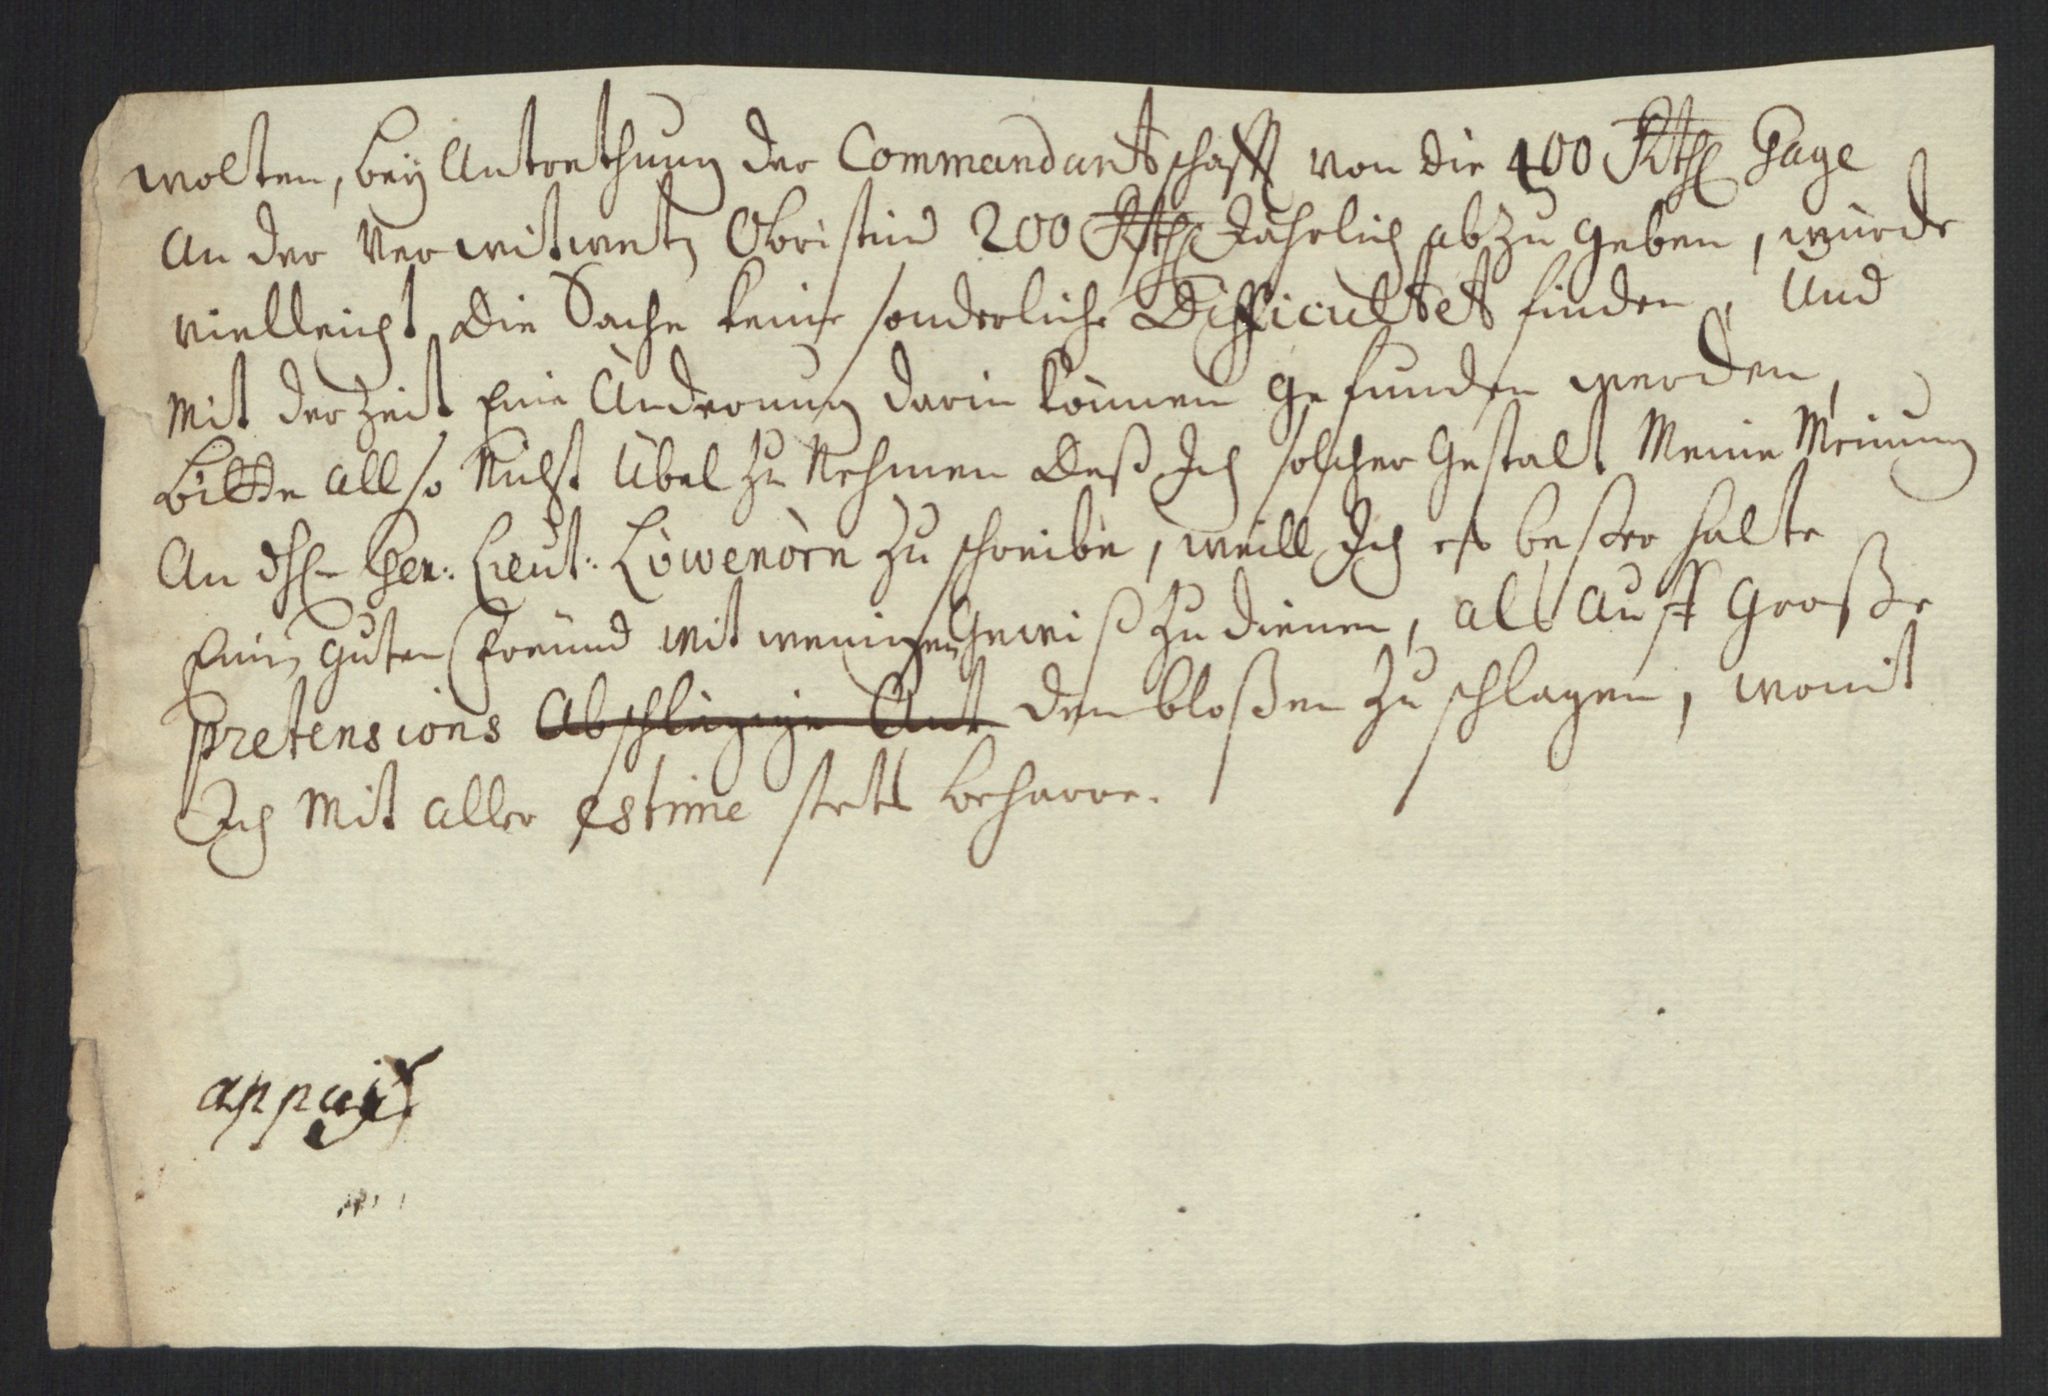 wolten, bey Antrethung der Commandantschafft von die 400 Rthl Gage
An der Verwitwetn Obristin 200 Rthl Jährlich abzu geben, würde
vielleicht die Sache keine sonderliche Difficultet finden, Und
Mit der Zeit Eine Änderung darin können gefunden werden,
bitte allso Nicht Übel Zu Nehmen daß Ich solcher Gestalt Meine Meinung
An Hl Gen: Lieut: Löwenörn Zu schreibe, weill Ich eß beßer halte
Einen guten Freund Mit wenigen Gewiß Zu dienen, als Auff Große
Pretensions Abschlägige Ant den bloßen Zu schlagen, womit
Ich Mit aller estime stets beharre.